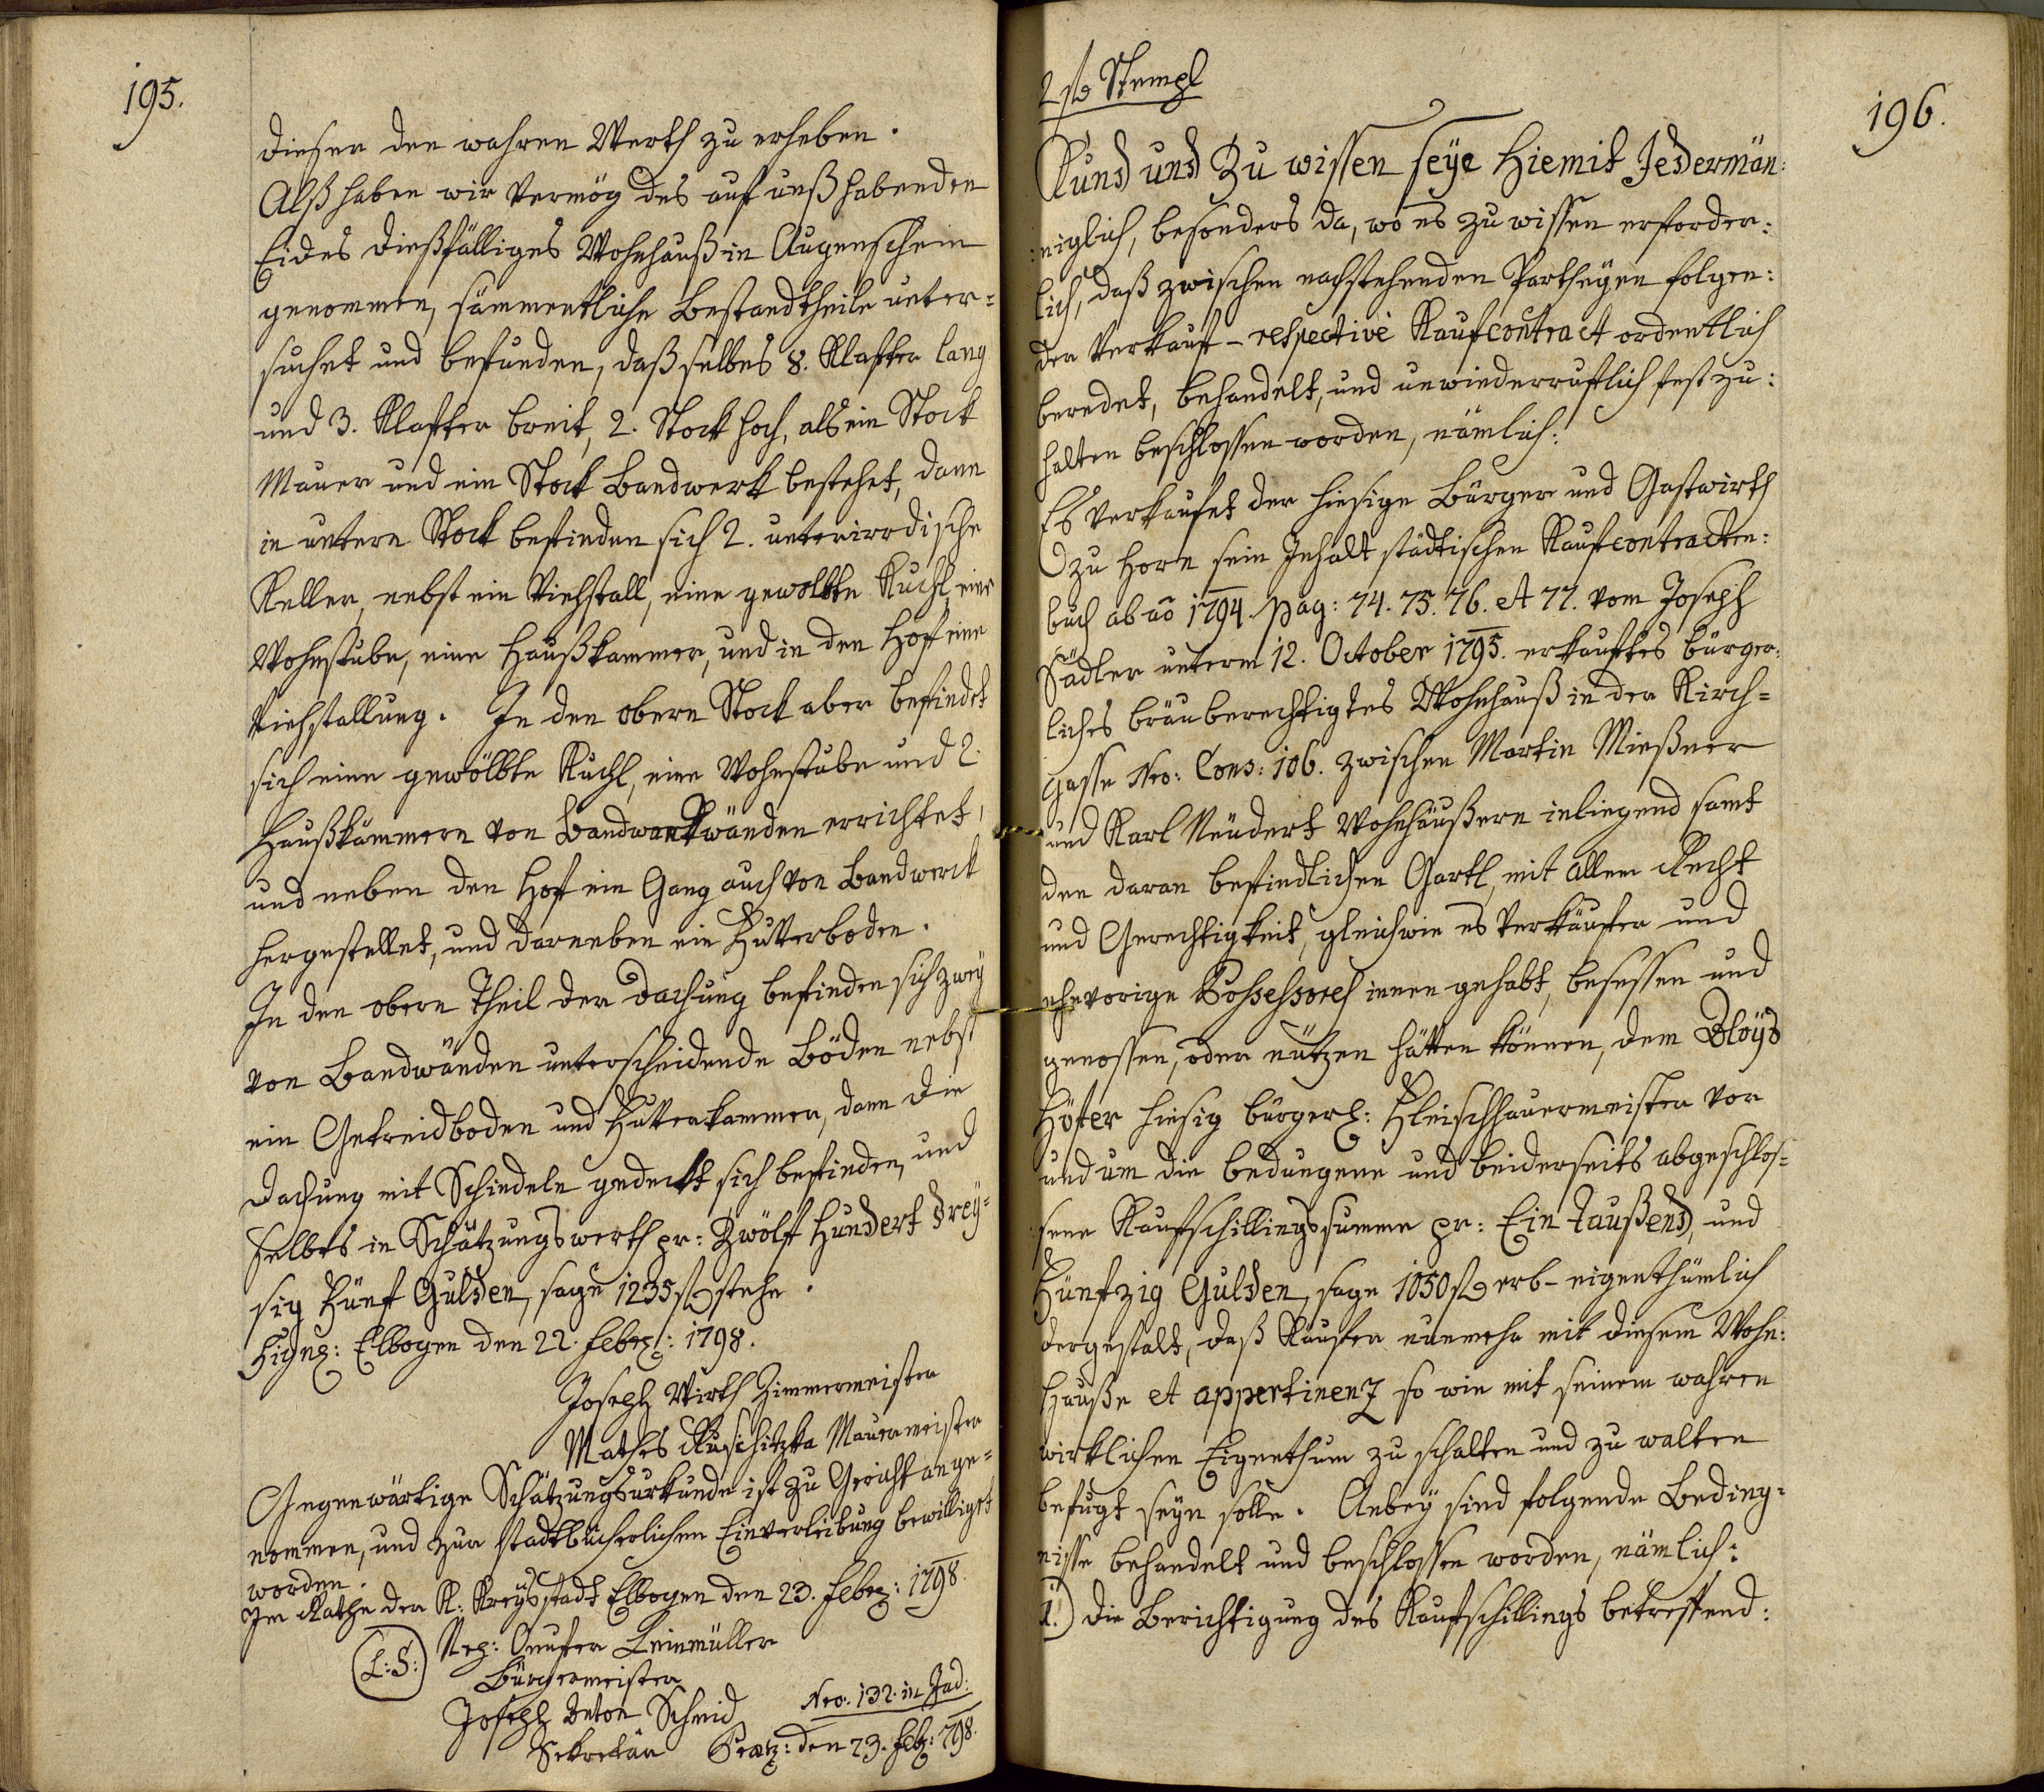 195.
diesen den wahren Werth zu erheben.
Alß haben wir vermög des auf unß habenden
Eides dießfälliges Wohnhauß in Augenschein
genommen, sämmentliche Bestandtheile unter-
suchet und befunden, daß selbes 8. Klafter lang
und 3. Klafter breit, 2. Stock hoch, als ein Stock
Mauer und ein Stock Bandwerk bestehet, dann
in untern Stock befinden sich 2. unterirrdische
Keller, nebst ein Viehstall, eine gewölbte Kuchl, eine
Wohnstube, eine Haußkammer, und in den Hof eine
Viehstallung. In den obern Stock aber befindet
sich eine gewölbte Kuchl, eine Wohnstube und 2
Haußkämmern von Bandwerkwänden errichtet,
und neben den Hof ein Gang auch von Bandwerk
hergestellet, und darneben ein Futterboden.
In den obern Theil der Dachung befinden sich zwey
von Bandwänden unterscheidende Böden nebst
ein Getreidboden und Futterkammer, dann die
Dachung mit Schindeln gedeckt sich befinden, und
selbes in Schätzungswerth pr: Zwölf Hundert drey-
sig Fünf Gulden, sage 1235 f stehe.
Sign: Elbogen den 22. Febr: 1798.
Joseph Wirth Zimmermeister
Mathes Ruschitzka Mauermeister
Gegenwärtige Schätzungsurkunde ist zu Gericht ange-
nommen, und zur stadtbücherlichen Einverleibung bewilligst
worden.
Im Rathe der K: Kreysstadt Elbogen den 23. Febr: 1798
(L:S:) Leinmüller
Bürgermeister
Joseph Anton Schmid
Sekretär
Nro. 132. in Jud:
Pratz: den 23. Feb: 798.
2 f Stempl
196.
Kund und Zu wissen seye Hiemit Jedermän:
:niglich, besonders da, wo es zu wissen erforder:
lich, daß zwischen nachstehenden Partheyen folgen:
der Verkauf- respective Kaufcontract ordentlich
beredet, behandelt, und unwiederruflich fest zu:
halten beschlossen worden, nämlich:
Es verkaufet der hiesige Bürger und Gastwirth
zu Horn sein Inhalt städtischen Kaufcontracten:
buch ab aõ 1794. pag: 74. 75. 76. et 77. vom Joseph
Sadler unterm 12. October 1795. erkauftes bürger:
liches bräuberechtigtes Wohnhauß in der Kirch-
gasse Nro: Cons: 106. zwischen Martin Mießner
und Karl Neudert Wohnhäußern inliegend samt
den daran befindlichen Gartl, mit allem Recht
und Gerechtigkeit, gleichwie es Verkäufer und
ehevorige Possessores innen gehabt, besessen und
genossen, oder nützen hätten können, dem Aloys
Höfer hiesig bürgerl: Fleischhauermeister vor
und um die bedungene und beiderseits abgeschlos-
sene Kaufschillingssumme pr: Ein taußend, und
Fünfzig Gulden, sage 1050 f erb- eigenthümlich
dergestalt, daß Käufer nunmehr mit diesem Wohn:
Hauße et appertinenz so wie mit seinem wahren
wirklichen Eigenthum zu schalten und zu walten
befugt seyn solle. Anbey sind folgende Beding-
nisse behandelt und beschlossen worden, nämlich:
1.) die Berichtigung des Kaufschillings betreffend: